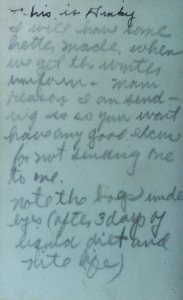 This is Hinky
I will have some
better made, when
we get the winter
uniform - main
reason I am send-
ing is so you won't
have any good excuse
for not sending one
to me.
note the bags under
eyes (after 3 days of
liquid diet and
nite life)